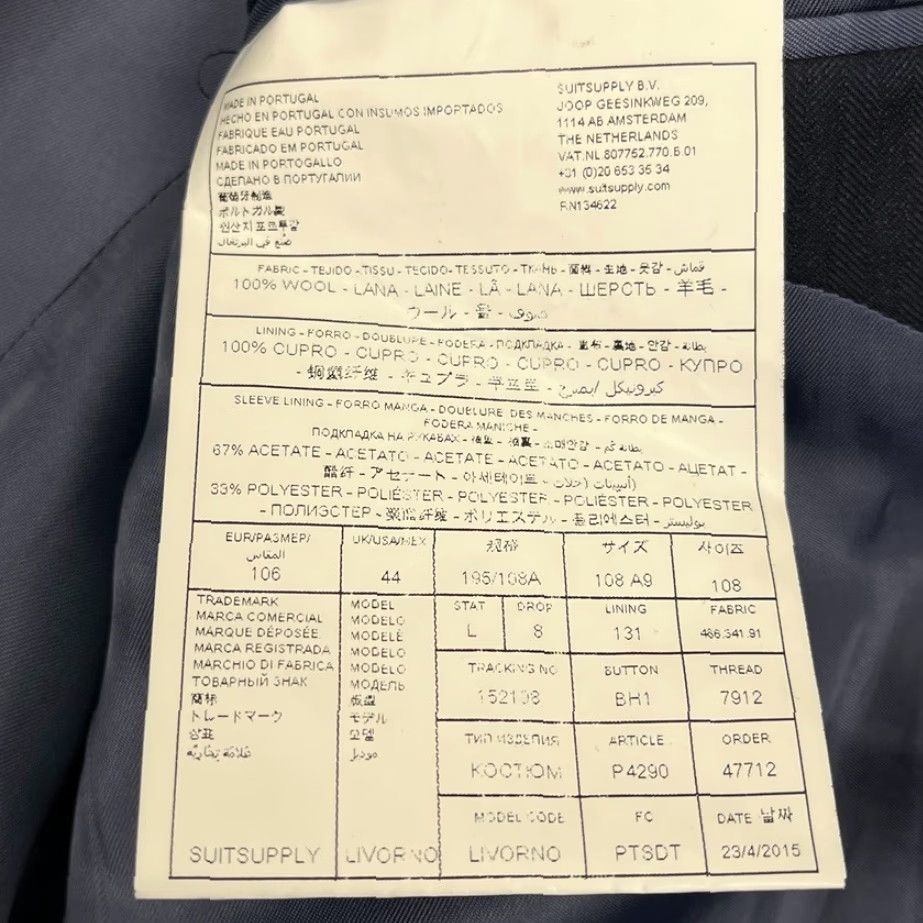 MADE IN PORTUGAL
HECHO EN PORTUGAL CON INSUMOS IMPORTADOS
FABRIQUE EAU PORTUGAL
FABRICADO EM PORTUGAL
MADE IN PORTOGALLO
СДЕЛАНО В ПОРТУГАЛИИ
葡萄牙制造
ポルトガル製
원산지 포르투갈
صنع في البرتغال
SUITSUPPLY B.V.
JOOP GEESINKWEG 209,
1114 AB AMSTERDAM
THE NETHERLANDS
VAT.NL.807752.770.B.01
+31 (0)20 653 35 34
www.suitsupply.com
RN134622
FABRIC - TEJIDO - TISSU - TECIDO - TESSUTO - ТКАНЬ - 面料 - 生地 - 옷감 - قماش
100% WOOL - LANA - LAINE - LÃ - LANA - ШЕРСТЬ - 羊毛 -
ウール - 울 - صوف
LINING - FORRO - DOUBLURE - FODERA - ПОДКЛАДКА - 裏地 - 안감 - بطانة
100% CUPRO - CUPRO - CUPRO - CUPRO - CUPRO - КУПРО
- 铜氨纤维 - キュプラ - 큐프로 -
SLEEVE LINING - FORRO MANGA - DOUBLURE DES MANCHES - FORRO DE MANGA -
FODERA MANICHE -
ПОДКЛАДКА НА РУКАВАХ - 袖裏 - 소매안감 - بطانة كم
67% ACETATE - ACETATO - ACETATE - ACETATO - ACETATO - АЦЕТАТ -
醋纤 - アセテート - 아세테이트 -
33% POLYESTER - POLIÉSTER - POLYESTER - POLIÉSTER - POLYESTER
- ПОЛИЭСТЕР - 聚酯纤维 - ポリエステル - 폴리에스터 - بوليستر
EUR/РАЗМЕР/
المقاس
106
UK/USA/MEX
44
规格
195/108A
サイズ
108 A9
사이즈
108
TRADEMARK
MARCA COMERCIAL
MARQUE DÉPOSÉE
MARCA REGISTRADA
MARCHIO DI FABRICA
ТОВАРНЫЙ ЗНАК
商标
トレードマーク
상표
SUITSUPPLY
MODEL
MODELO
MODELÈ
MODELO
MODELO
МОДЕЛЬ
版型
モデル
모델
موديل
LIVORNO
STAT
L
DROP
8
LINING
131
FABRIC
466.341.91
TRACKING NO
152108
BUTTON
BH1
THREAD
7912
ТИП ИЗДЕЛИЯ
КОСТЮМ
ARTICLE
P4290
ORDER
47712
MODEL CODE
LIVORNO
FC
PTSDT
DATE 날짜
23/4/2015